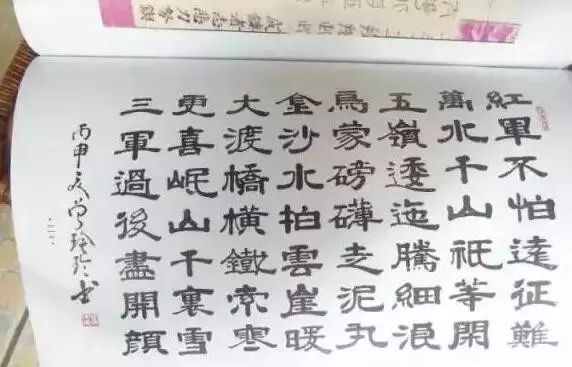 紅軍不怕遠征難
萬水千山祇等閑
五嶺逶迤騰細浪
烏蒙磅礴走泥丸
金沙水拍雲崖暖
大渡橋橫鐵索寒
更喜岷山千裏雪
三軍過後盡開顏
丙申夏
書